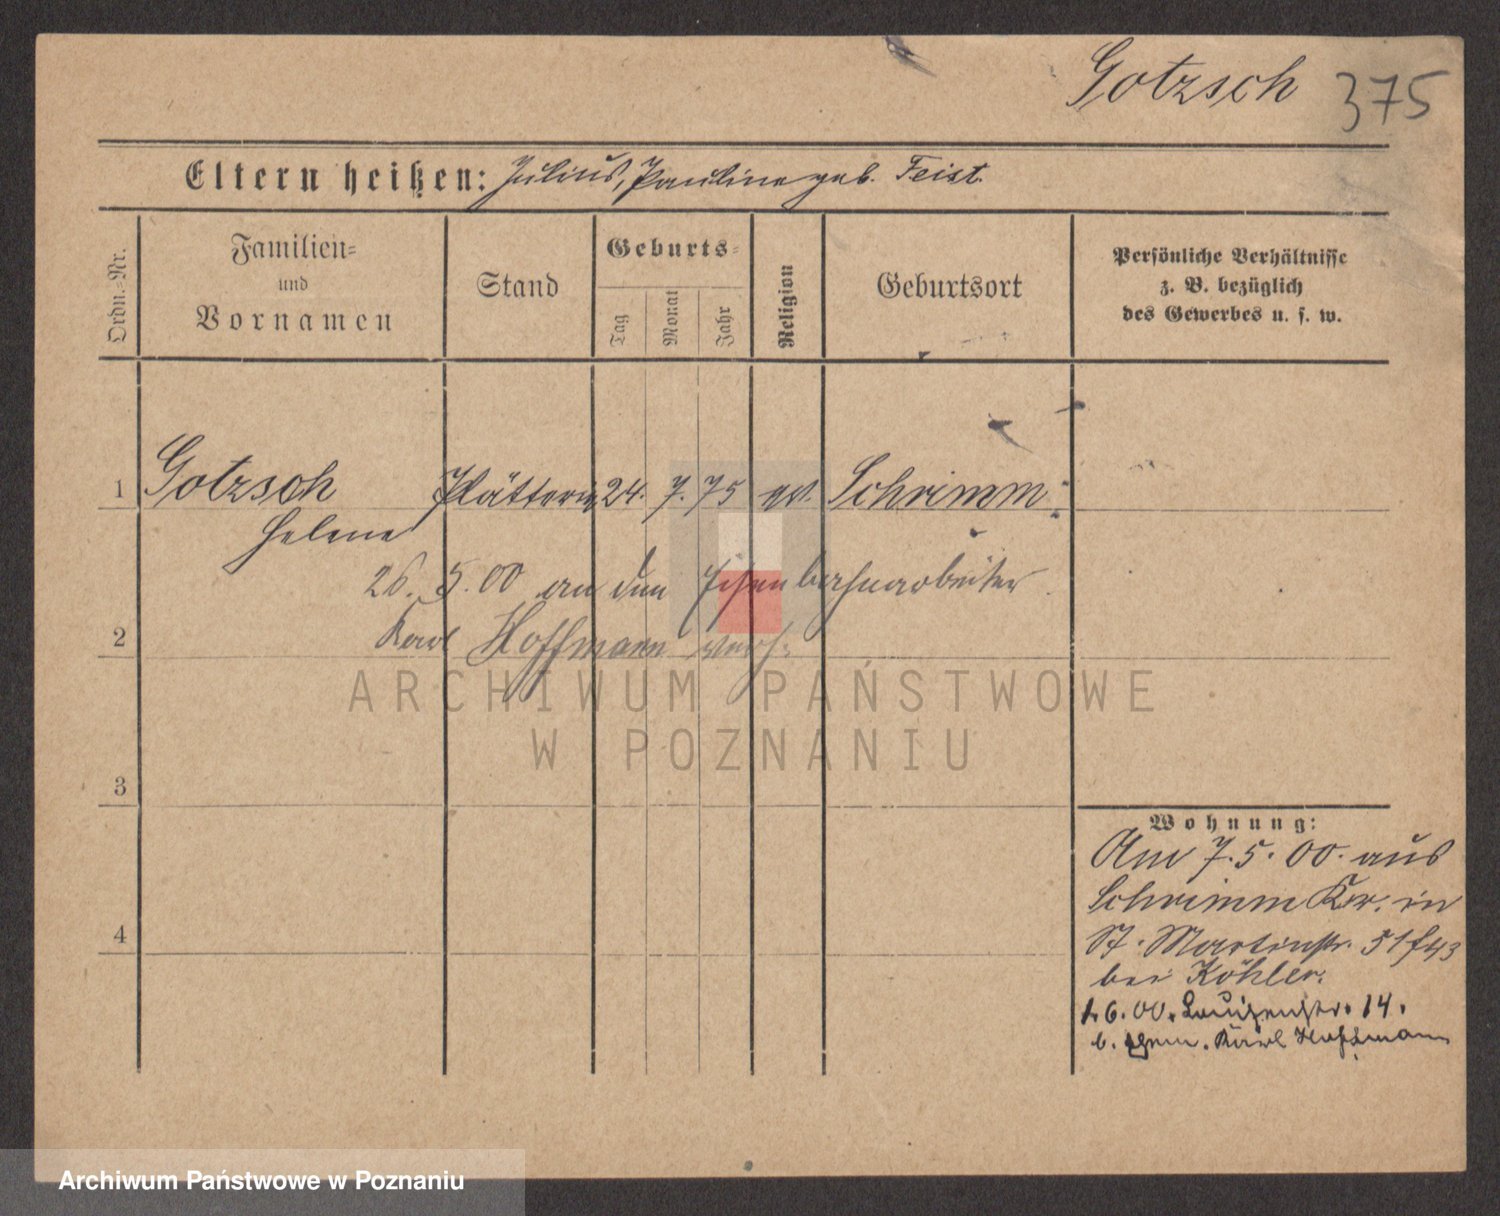 Gotzsch 375
Eltern heißen: Julius, Pauline geb. Feist.
Ordn.-Nr.
Familien- und Vornamen
Stand
Geburts-
Tag
Monat
Jahr
Religion
Geburtsort
Persönliche Verhältnisse
z. B. bezüglich
des Gewerbes u. s. w.
1 Gotzsch Plätterin 24. 7. 75 ev. Schrimm
Helene
26. 5. 00 an den Eisenbahnarbeiter
2 Karl Hoffmann verh.
ARCHIWUM PAŃSTWOWE
W POZNANIU
3
Wohnung:
Am 7. 5. 00. aus
Schrimm Kr. in
4
St. Martinstr. 51
bei Köhler.
6. 00. Louisenstr. 14.
b. Karl Hoffmann
Archiwum Państwowe w Poznaniu